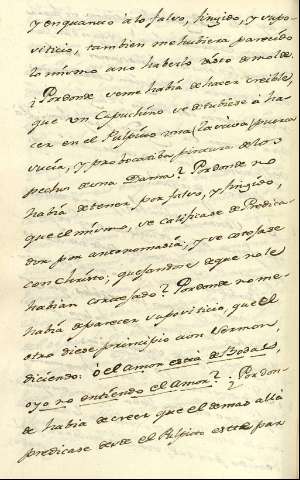 y en quanto á lo falso, fingido, y supo-
siticio, tambien me hubiera parecido
lo mismo a no haberlo visto de molde.
¿Por donde se me había de hacer creible,
que un Capuchino se detubiese á ha-
cer en el Pulpito una lasciva puerca
sucia, y probocatiba pintura de los
pechos de una Dama? Por donde no
había de tener por falso, y fingido,
que el mismo, se calificase de Predica-
dor por antonomasia, y se cotejase
con Christo; quejandose de que no le
habían cortejado? Por donde no me
había de parecer supositicio, que el
otro diese principio a un Sermon,
diciendo: ó el amor está de Bodas,
o yo no entiendo el Amor? ¿Por don-
de había de creer que el de mas allá
predicase desde el Pulpito este par